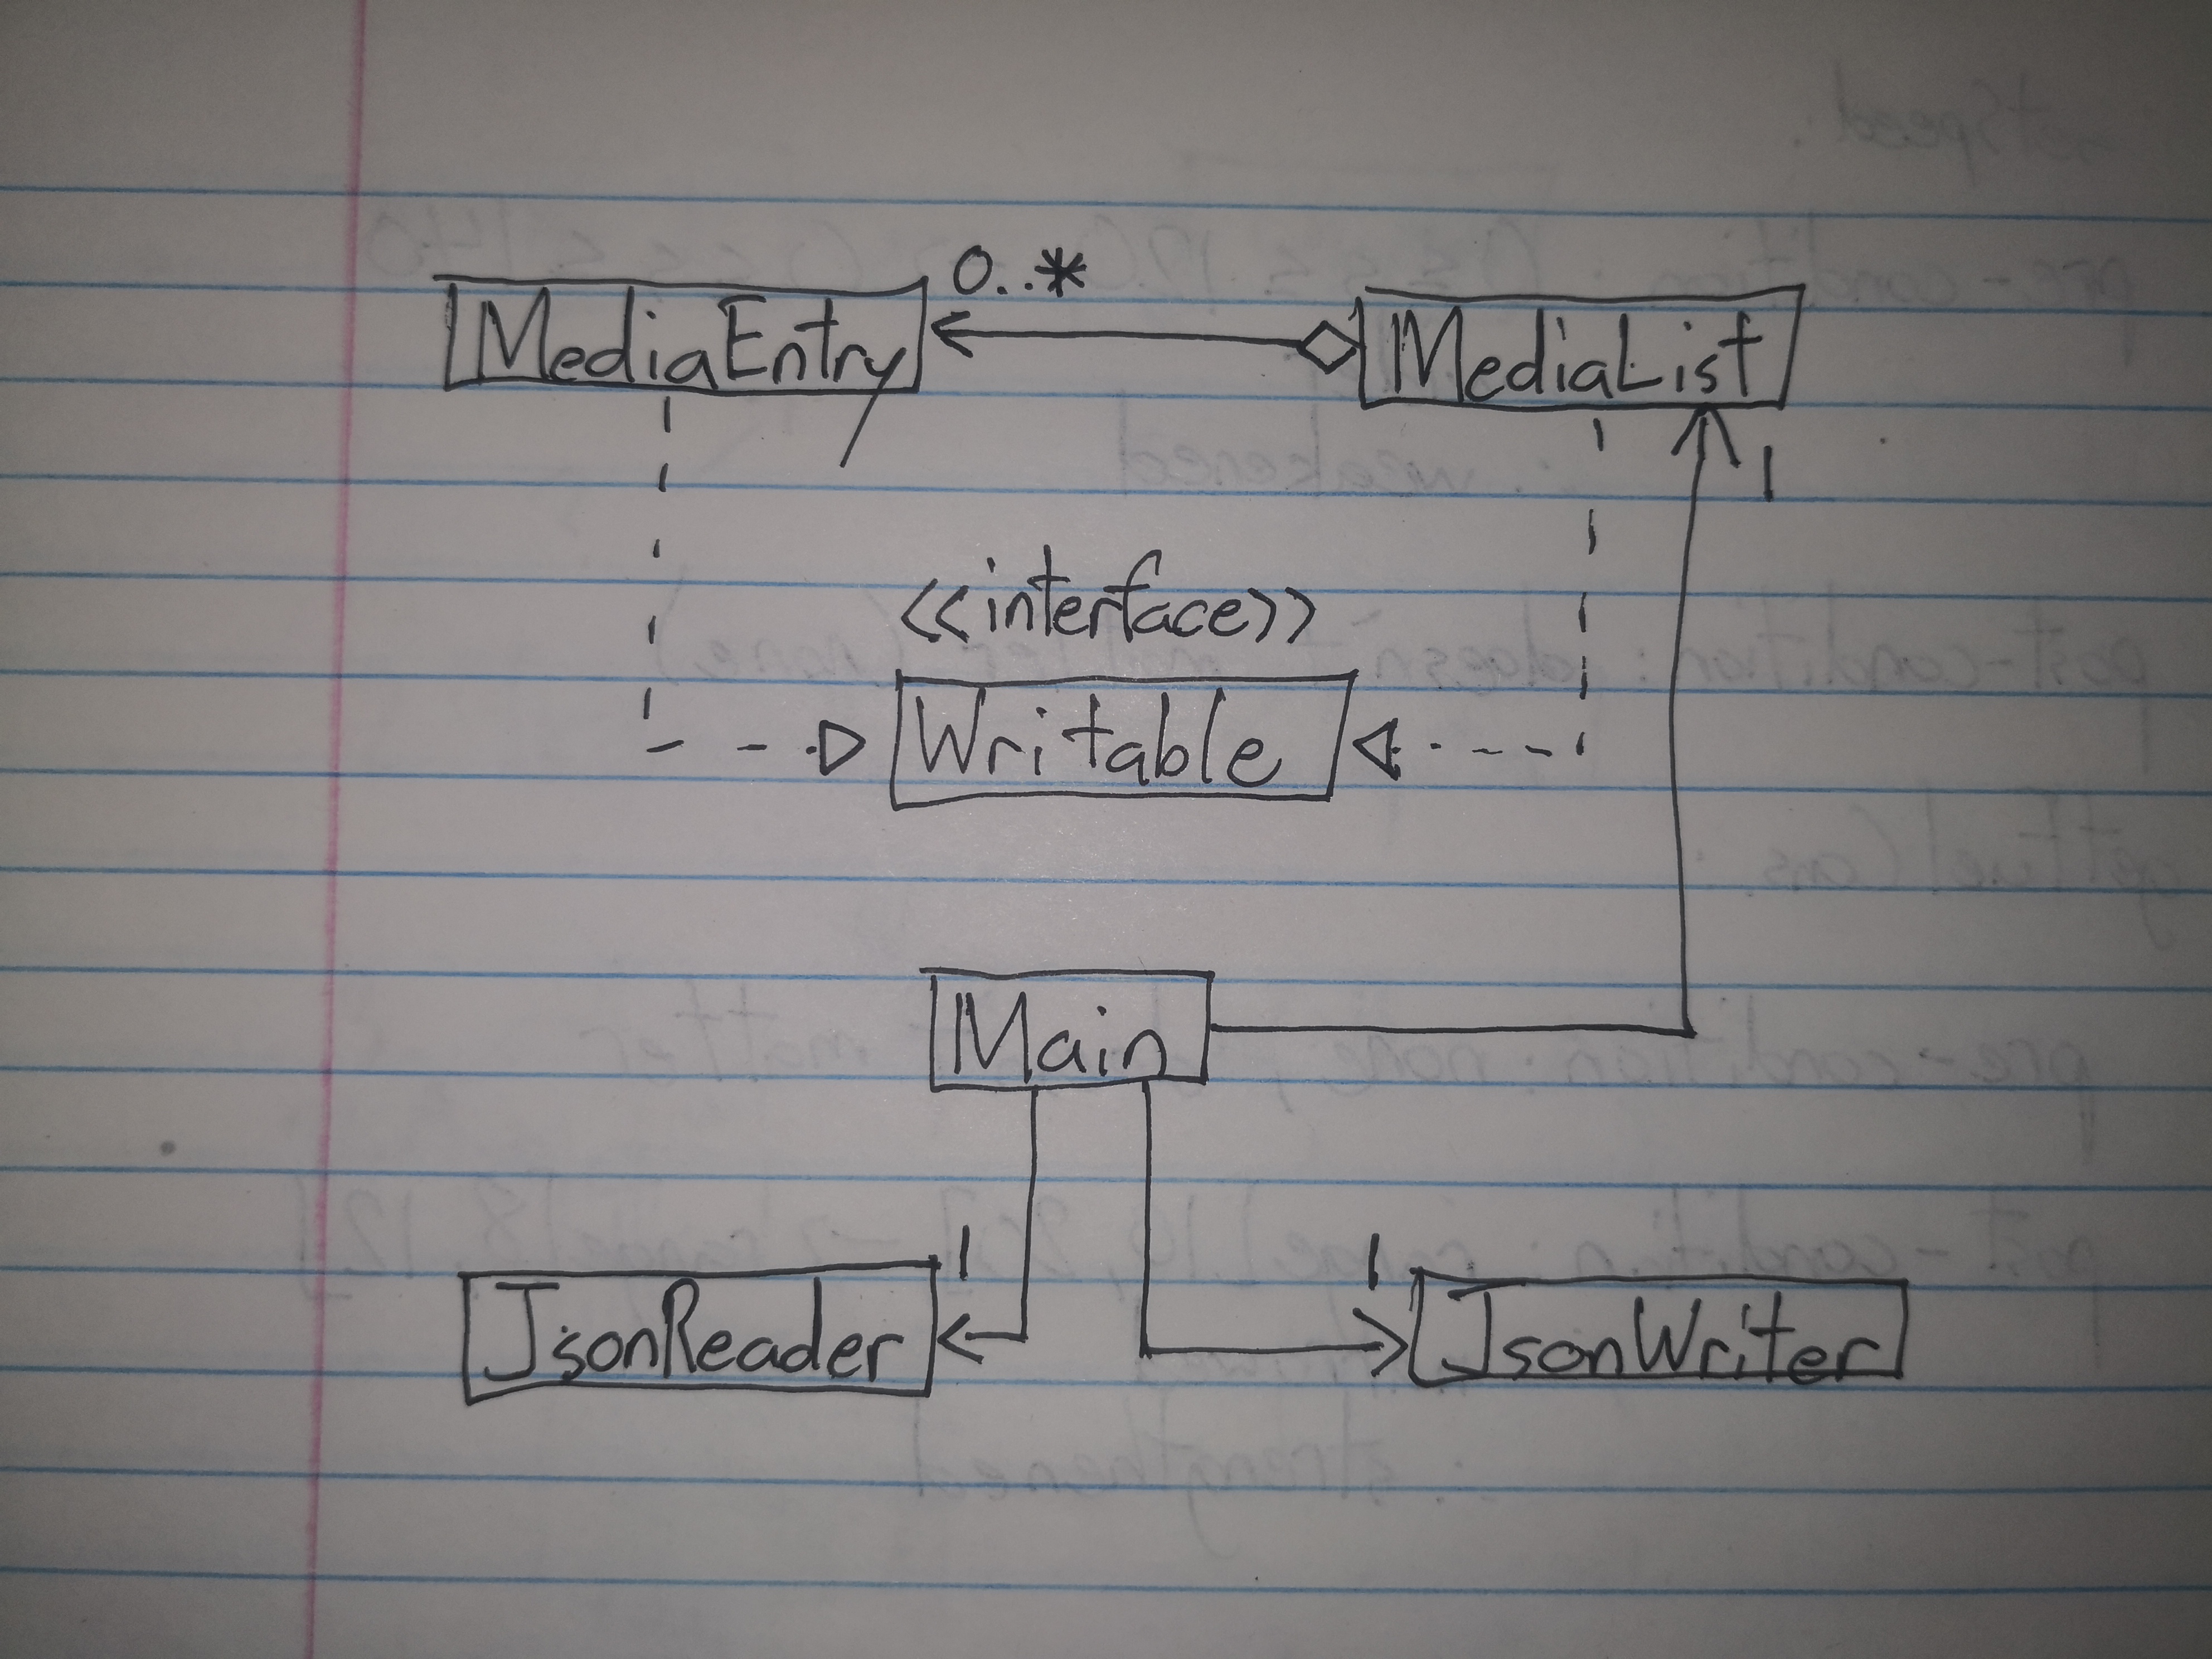 0..*
MediaEntry
MediaList
1
<<interface>>
Writable
Main
1
1
JsonReader
JsonWriter